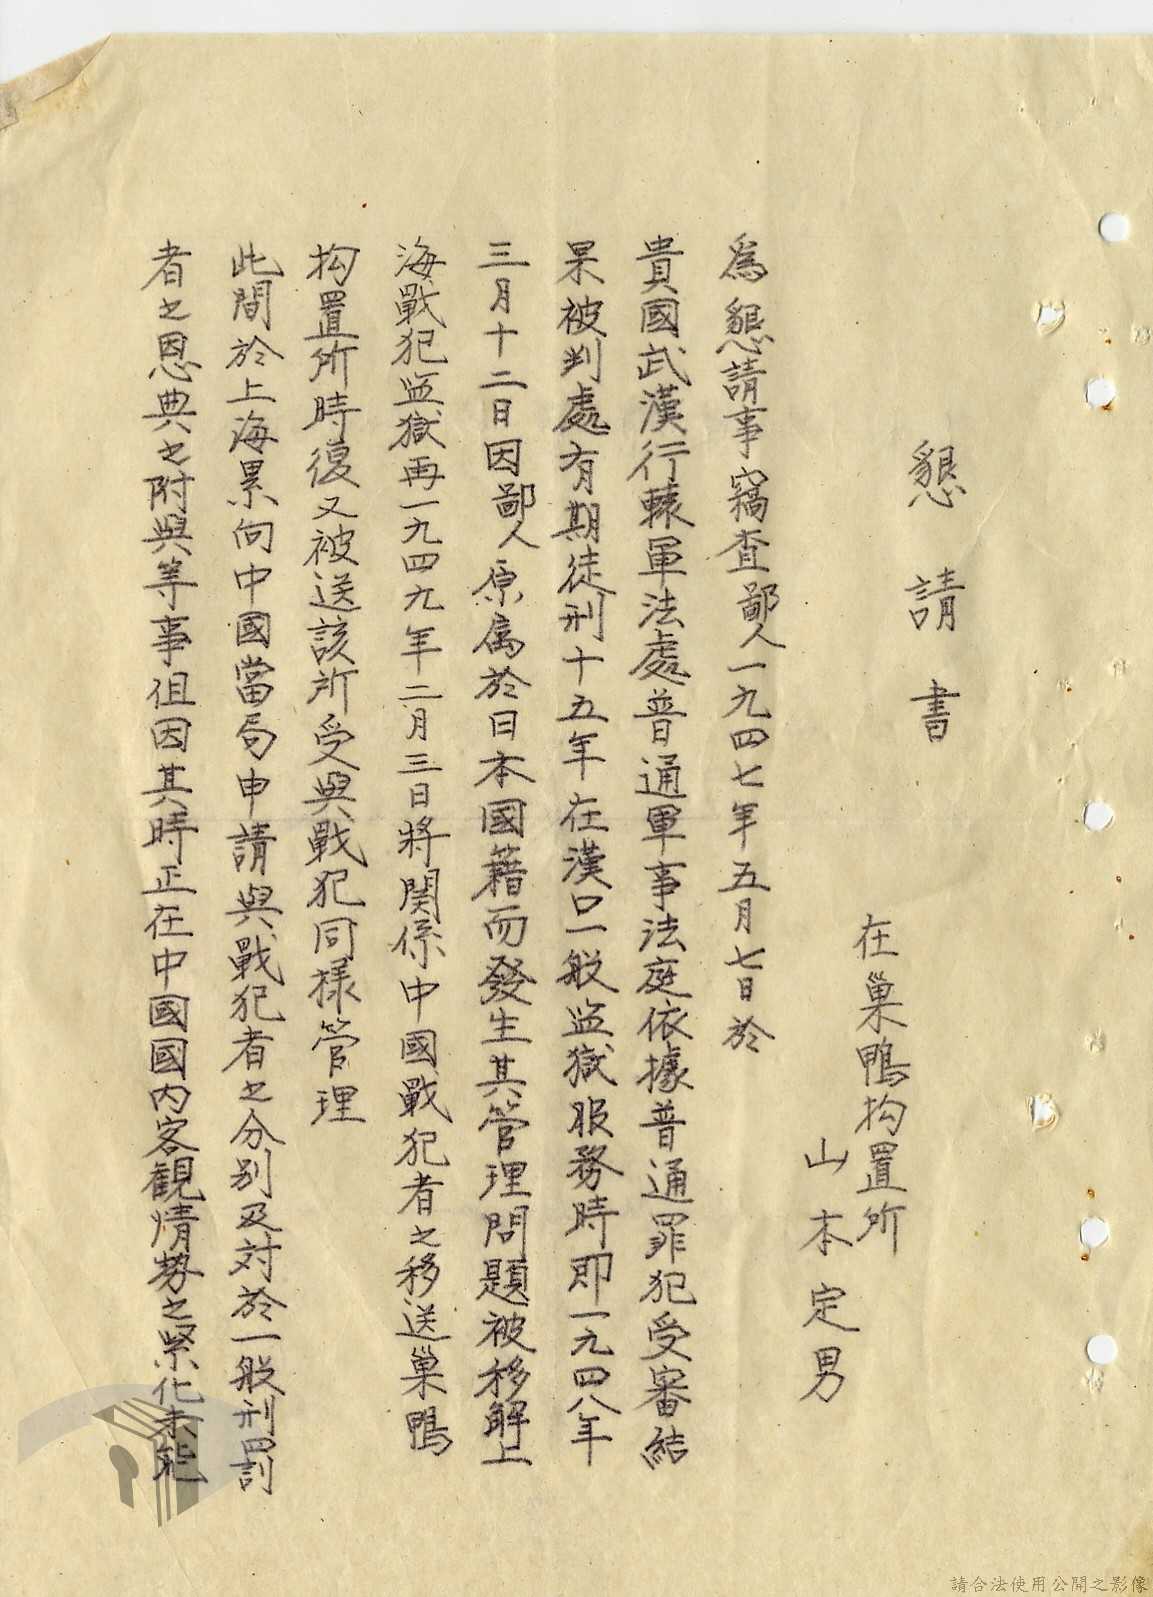 懇請書
在巢鴨拘置所
山本定男
爲懇請事竊查鄙人一九四七年五月七日於
貴國武漢行轅軍法處普通軍事法庭依據普通罪犯受審結
果被判處有期徒刑十五年在漢口一般监獄服務時即一九四八年
三月十二日因鄙人原属於日本國籍而發生其管理問題被移解上
海戰犯监獄再一九四九年二月三日將関係中國戰犯者之移送巢鴨
拘置所時復又被送該所受與戰犯同樣管理
此間於上海累向中國當局申請與戰犯者之分别及対於一般刑罰
者之恩典之附與等事但因其時正在中國國内客観情势之緊化未能
請合法使用公開之影像